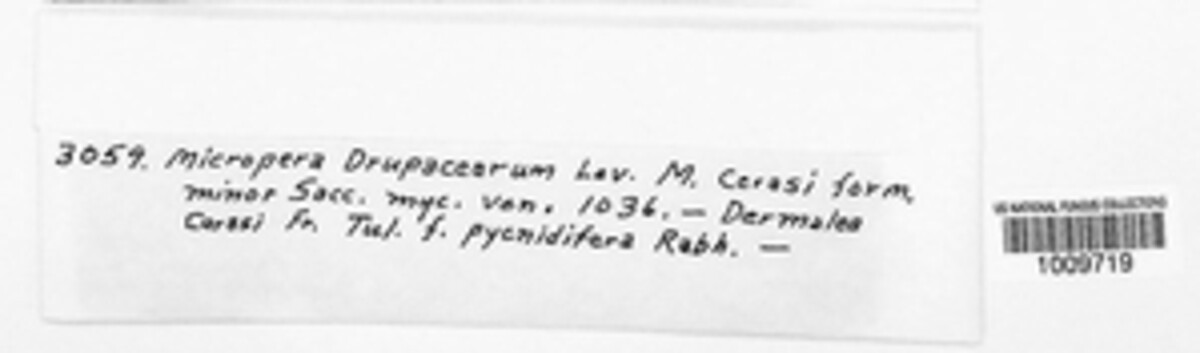 3059. Micropera Drupacearum Lev. M. Cerasi form,
minor Sacc. myc. ven. 1036. — Dermatea
Cerasi Fr. Tul. f. pycnidifera Rabh. —
US NATIONAL FUNGUS COLLECTIONS
1009719